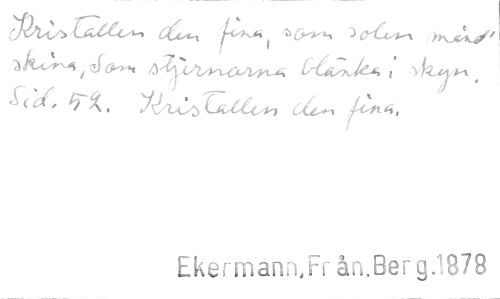 Kristallen den fina, som solen månd'
skina, Som stjernorna blänka i skyn.
Sid. 52. Kristallen den fina.
Ekermann, Från. Berg. 1878